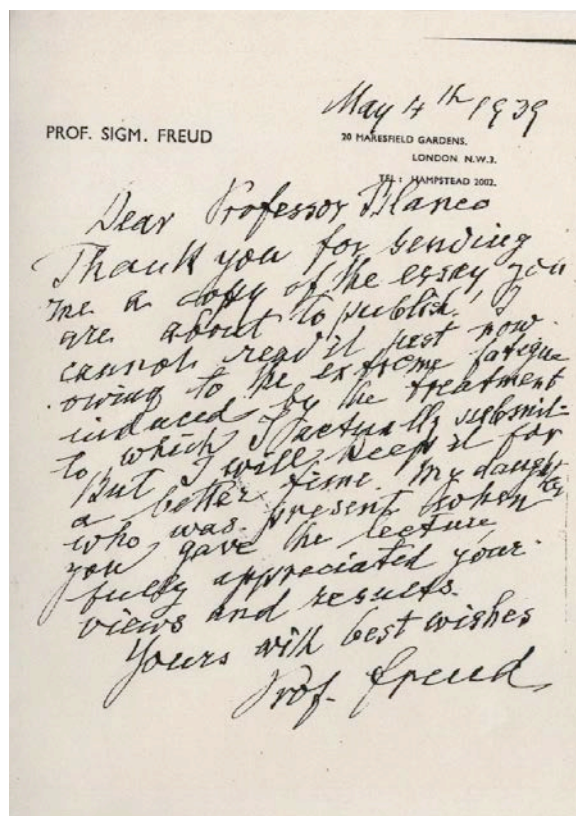 May 4th 1939
PROF. SIGM. FREUD
20 MARESFIELD GARDENS.
LONDON N.W.3.
TEL: HAMPSTEAD 2002.
Dear Professor Blanco
Thank you for sending
me a copy of the essay you
are about to publish. I
cannot read it just now
owing to the extreme fatigue
induced by the treatment
to which I actually submit-
But I will keep it for
a better time. My daughter
who was present when
you gave the lecture
fully appreciated your
views and results.
Yours with best wishes
Prof. Freud